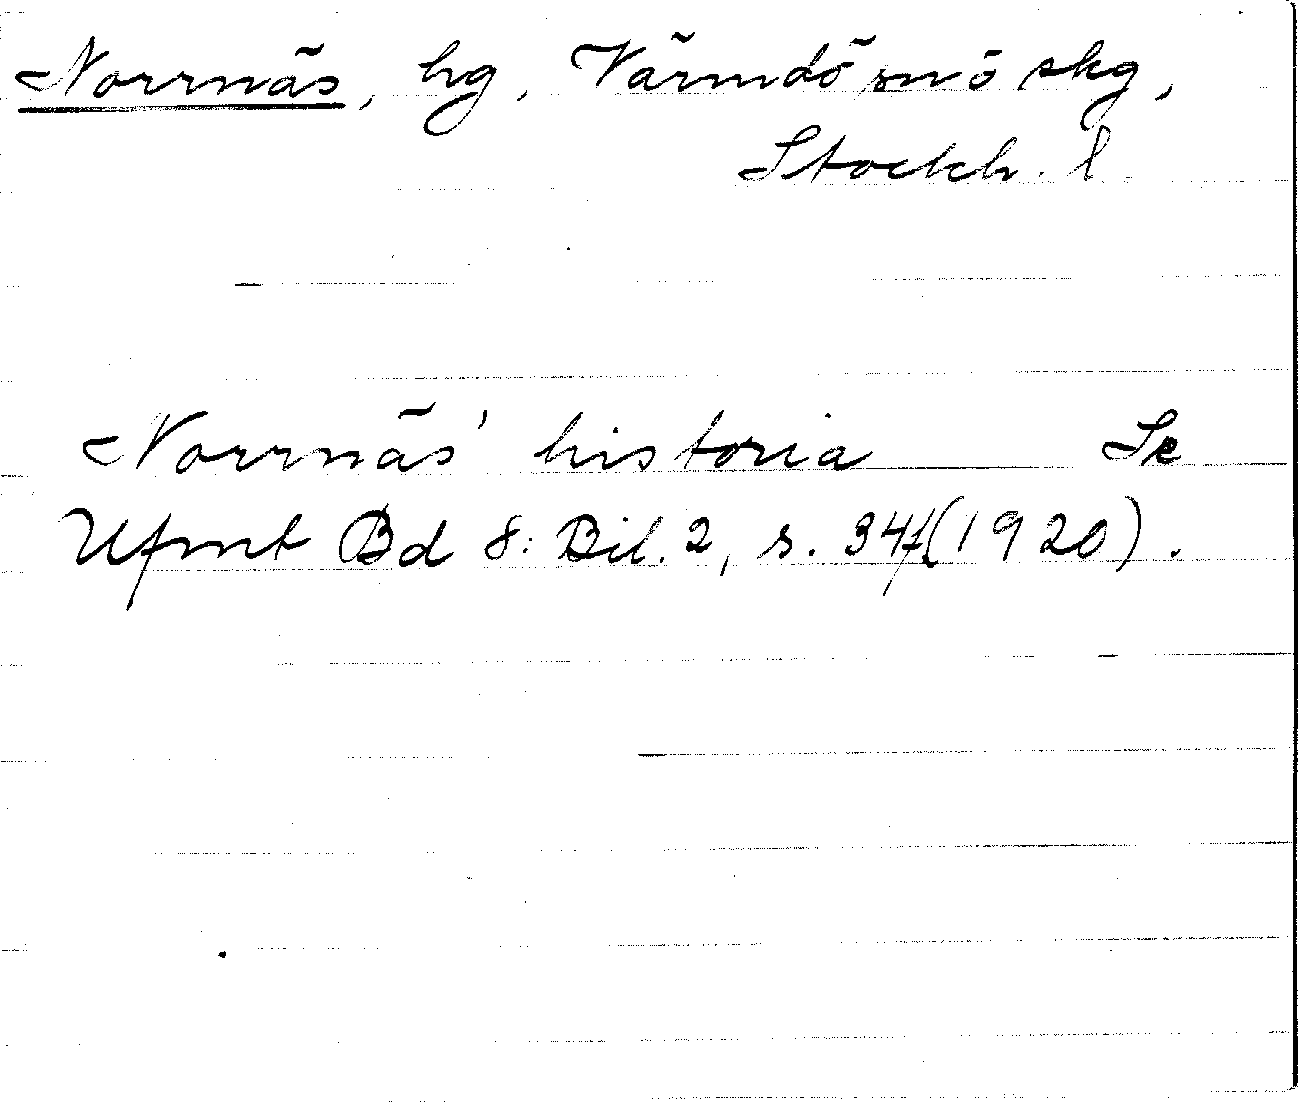 Norrnäs, hg, Värmdö snö skg,
Stockh. l.
Norrnäs' historia Se
Ufmt Bd 8: Bil. 2, s. 34f (1920).